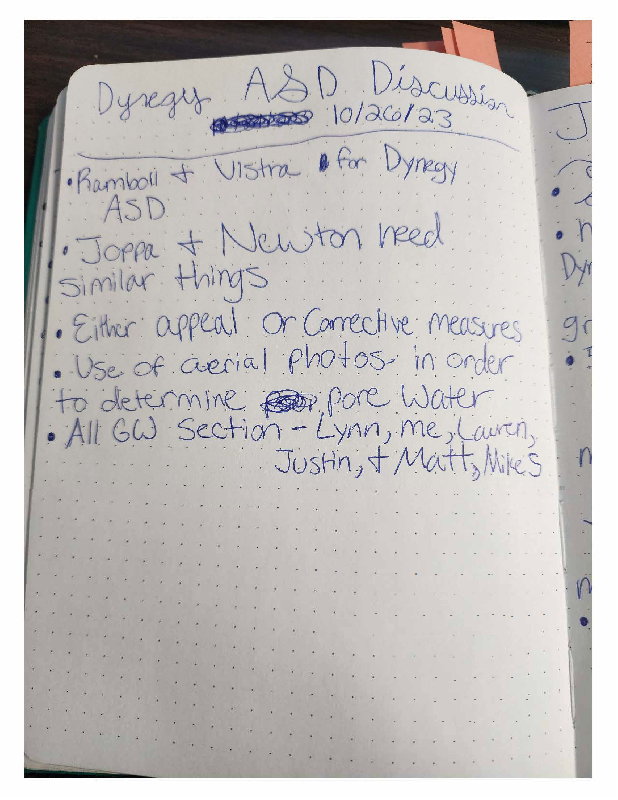 Dynegy ASD Discussion
10/26/23
• Ramboll + Vistra for Dynegy
ASD
• Joppa + Newton need
similar things
• Either appeal or Corrective measures
• Use of aerial photos in order
to determine pore water
• All GW Section - Lynn, me, Lauren,
Justin, + Matt, Mike S
J
Dyn
gr